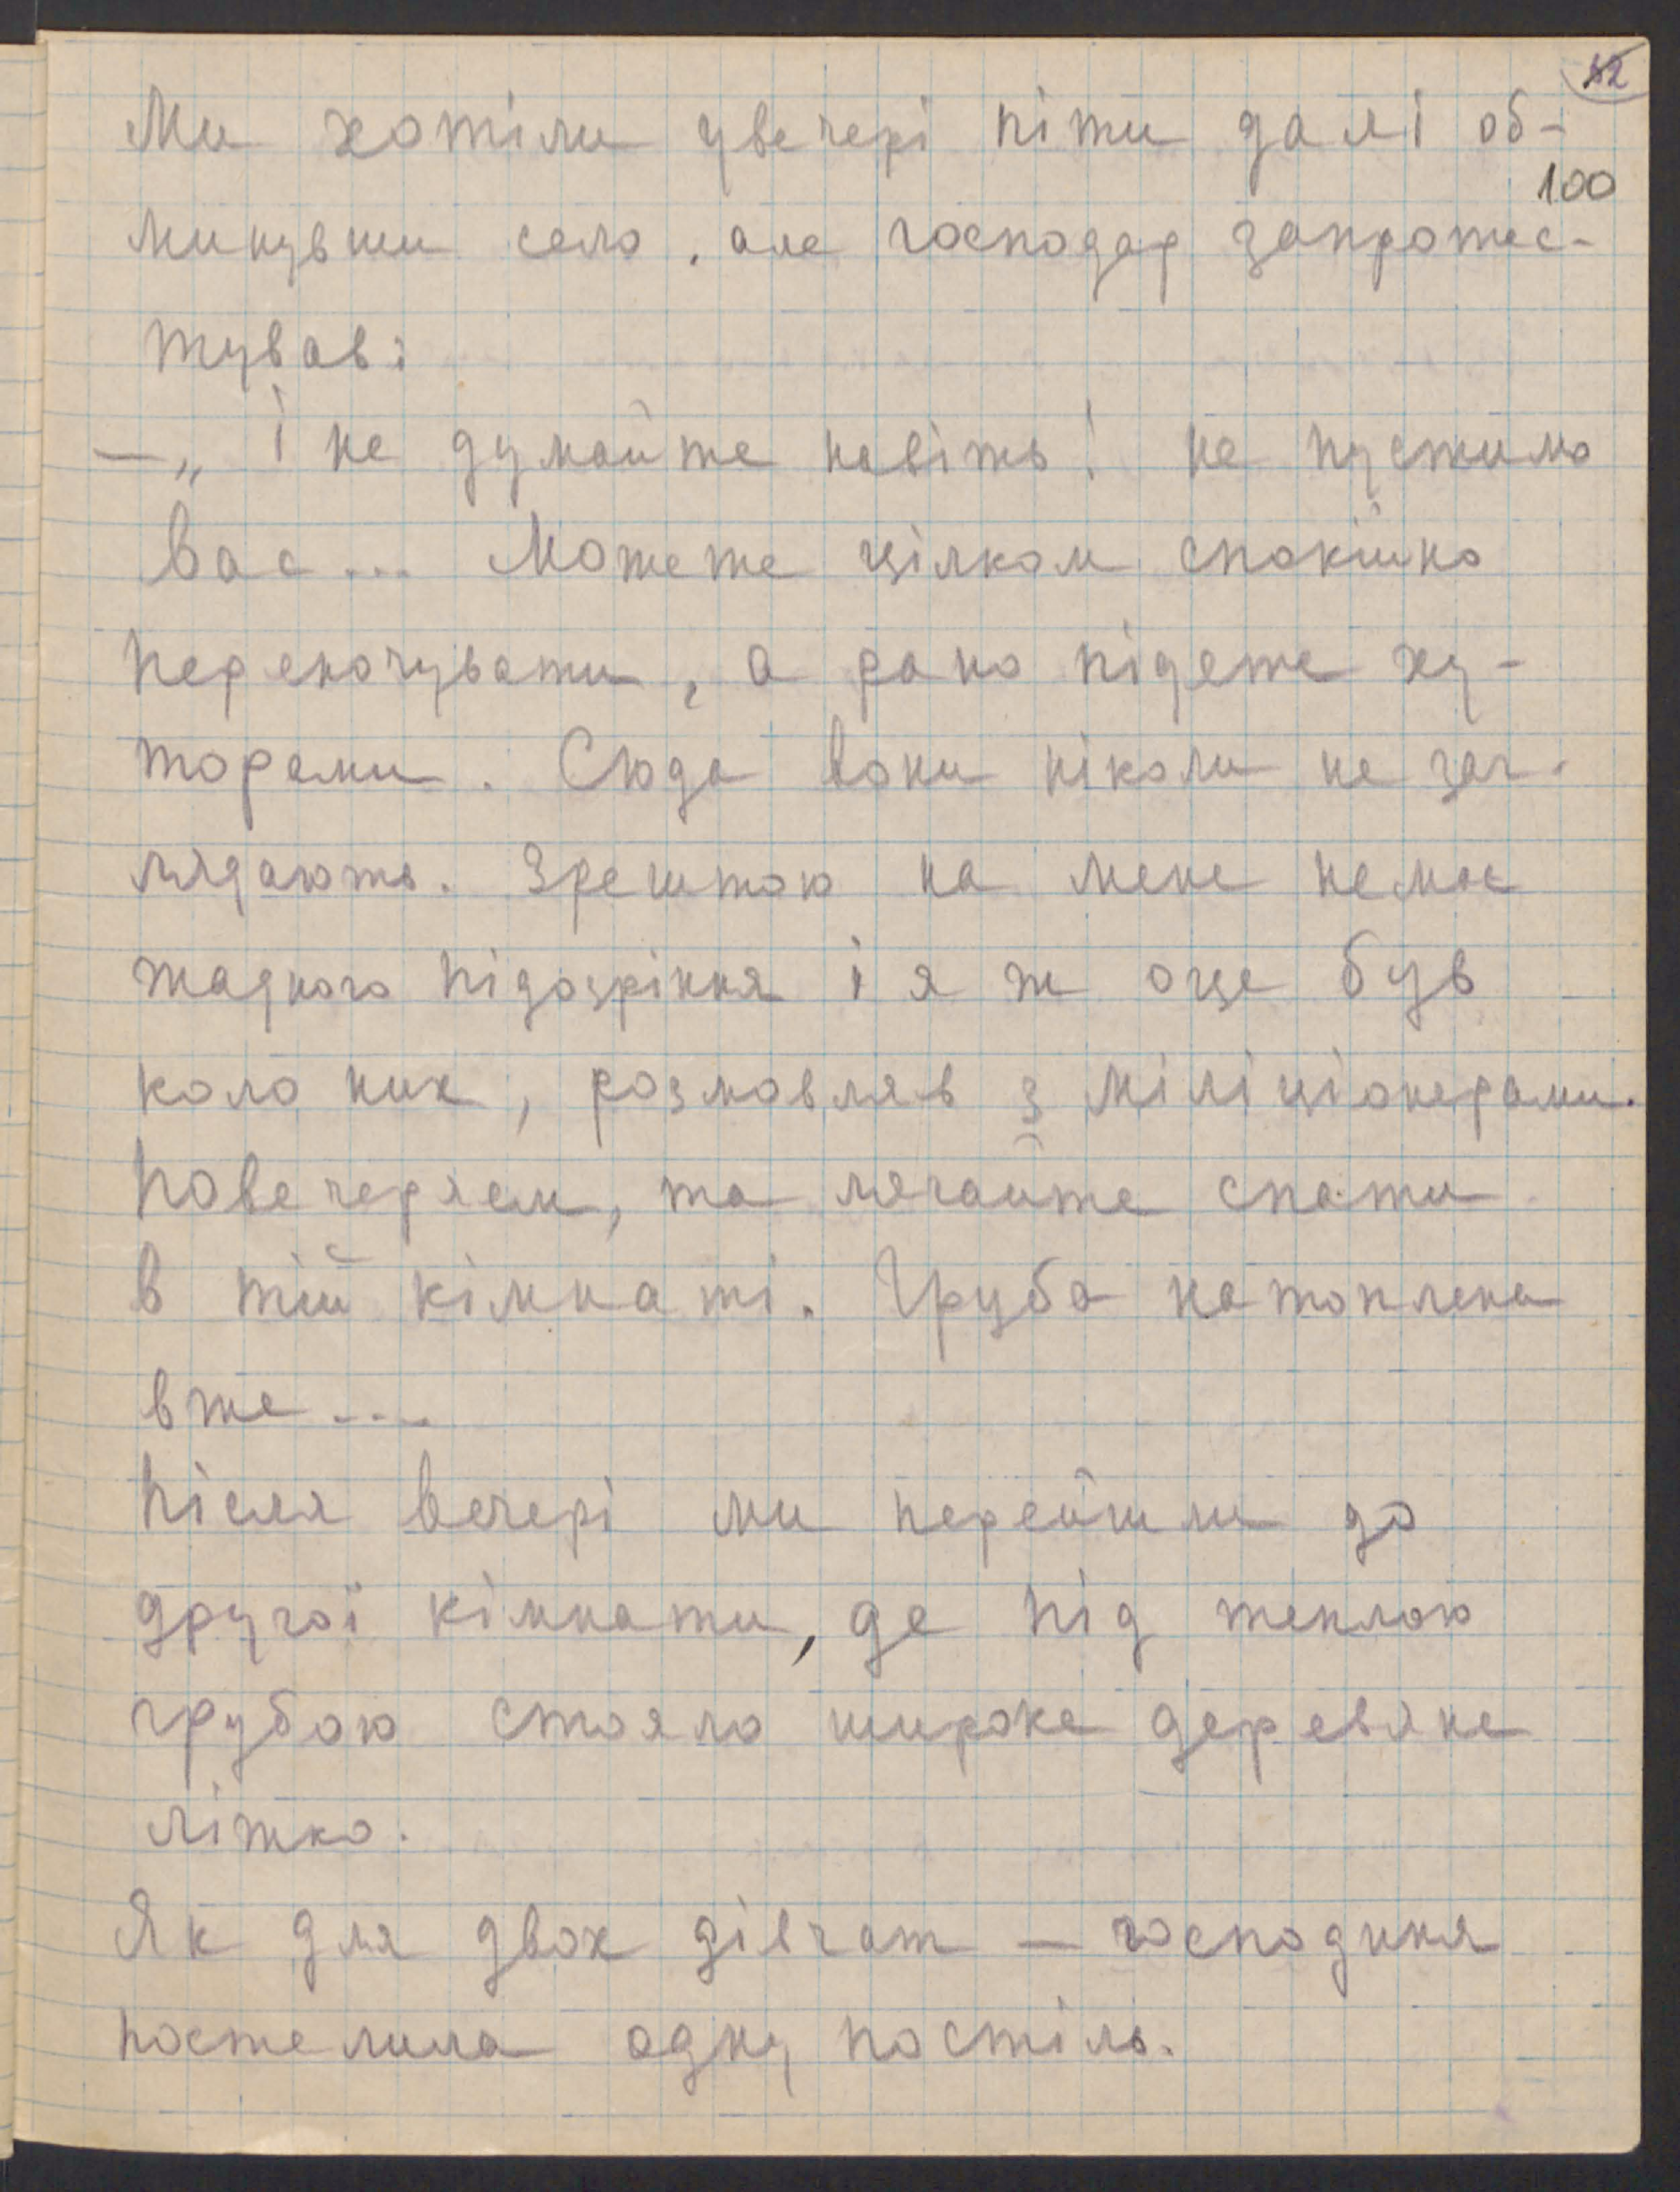 82
Ми хотіли увечері піти далі об-
100
минувши село, але господар запротес-
тував:
— „І не думайте навіть! не пустимо
Вас... Можете цілком спокійно
переночувати, а рано підете ху-
торами. Сюда вони ніколи не заг-
лядають. Зрештою на мене немає
жадного підозріння і я ж оце був
коло них, розмовляв з міліціонерами.
Повечеряєм, та лягайте спати
в тій кімнаті. Груба натоплена
вже....
Після вечері ми перейшли до
другої кімнати, де під теплою
грубою стояло широке деревяне
ліжко.
Як для двох дівчат — господиня
постелила одну постіль.